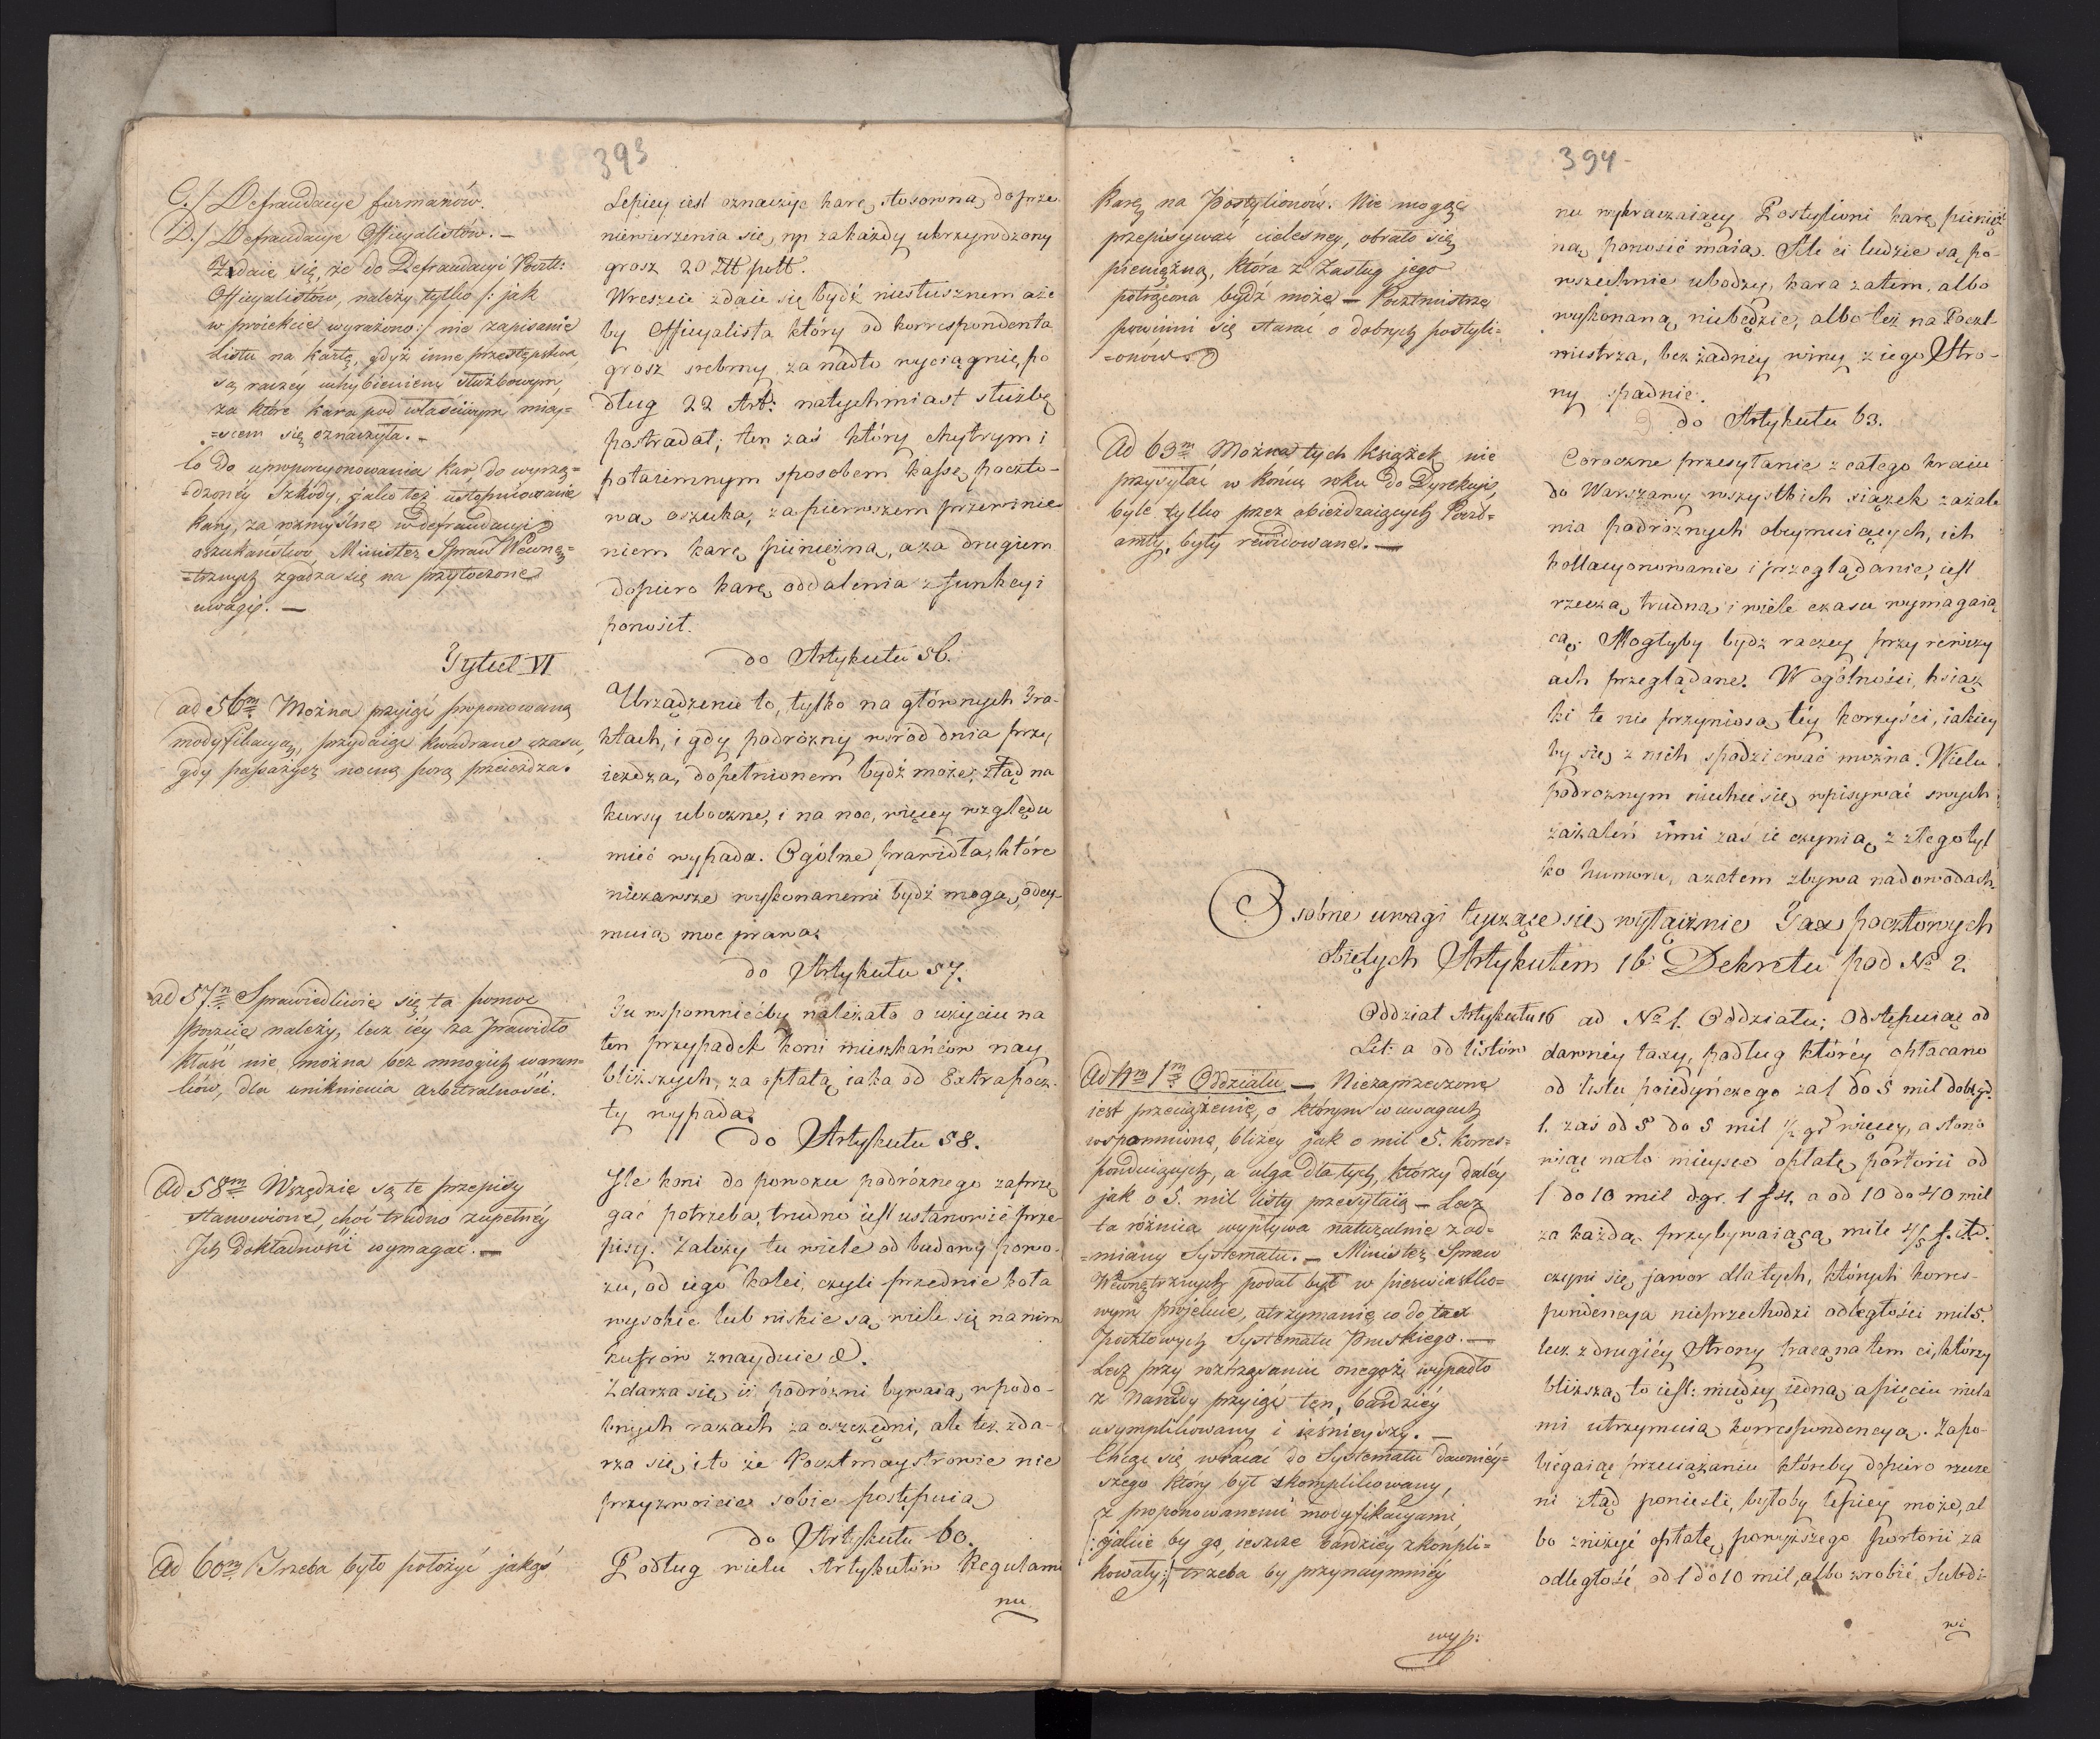 393
C./ Defraudacye furmanów.
D./ Defraudacye Officyalistów. —
Zdaie się, że do Defraudacyi Poczt:
Officyalistów, należy tylko /: jak
w proiekcie wyrażono :/ nie zapisanie
listu na kartę, gdyż inne przestępstwa
są raczéy uchybieniem służbowym,
za które kara pod właściwym miey=
=scem się oznaczyła. —
Co do uproporcyonowania kar, do wyrzą=
=dzonéy szkody, jako też ustopniowanie
kary, za rozmyślne w defraudacyi
oszukaństwo, Minister Spraw Wewnę=
=trznych zgadza się na przytoczone
uwagi. —
Tytuł VI
ad 56m Można przyiąć proponowaną
modyfikacyą, przydaiąc kwadrans czasu,
gdy passażyer nocną porą przeieżdza.
ad 57m Sprawiedliwie się ta pomoc
poczcie należy, lecz iéy za prawidło
kłaść nie można bez mnogich warun=
ków, dla uniknienia arbitralności.
Ad 58m Wszędzie są te przepisy
stanowione, choć trudno zupełnéy
Ich dokładności wymagać. —
Ad 60m Trzeba było położyć jakąś
Lepiey iest oznaczyć karę stosowną do prze-
niewierzenia się, np za każdy ukrzywdzony
grosz 20 Złt polł.
Wreszcie zdaie się bydź niesłusznem aże
by Officyalista który od korrespondenta
grosz srebrny za nadto wyciągnie, po
dług 22 Art: natychmiast służbę
postradał; ten zaś który chytrym i
potaiemnym sposobem kassę poczto-
wą oszuka, za pierwszem przewinie-
niem karę pieniężną, a za drugiem
dopiero karę oddalenia z funkcyi
ponosił.
do Artykułu 56.
Urządzenie to, tylko na głównych Tra-
ktach, i gdy podróżny wśród dnia przy
ieżdza, dopełnionem bydź może, ztąd na
kursy uboczne, i na noc, więcey względu
mieć wypada. Ogólne prawidła, które
niezawsze wykonanemi bydź mogą, odey-
muią moc prawa.
do Artykułu 57.
Tu wspomniećby należało o użyciu na
ten przypadek koni mieszkańców nay
bliższych, za opłatą iaka od Extrapocz-
ty wypada.
do Artykułu 58.
Ile koni do powozu podróżnego zaprzę
gać potrzeba, trudno iest ustanowić prze-
pisy. Zależy tu wiele od budowy powo-
zu, od iego kolei, czyli przednie koła
wysokie lub niskie są, wiele się na nim
kufrów znayduie &.
Zdarza się, iż podróżni bywaią w podo-
bnych razach za oszczędni, ale też zda-
rza się i to że Pocztmaystrowie nie
przyzwoicie sobie postępuią
do Artykułu 60.
Podług wielu Artykułów Regulami
nu
394
Karę na Postylionów. Nie mogąc
przepisywać cielesney, obrało się
pieniężną, która z zasług jego
potrącona bydź może — Poczmistrze
powinni się starać o dobrych postyli=
=onów.
Ad 63m Można tych książek nie
przysyłać w końcu roku do Dyrekcyi,
byle tylko przez obieżdzaiących Poczt=
amty, były rewidowane. —
nu wykraczaiący Postylioni karę pienięż
ną ponosić maią. Ale ci ludzie są po-
wszechnie ubodzy, kara zatem, albo
wykonaną niebędzie, albo też na Poczt-
mistrza, bez żadney winy z iego Stro-
ny spadnie.
do Artykułu 63.
Coroczne przesyłanie z całego kraiu
do Warszawy wszystkich siążek zażale
nia podróżnych obeymuiących, ich
kollacyonowanie i przeglądanie, iest
rzeczą trudną i wiele czasu wymagaią
cą. Mogłyby bydz raczey przy rewizy
ach przeglądane. W ogólności, książ
ki te nie przyniosą téy korzyści, iakiey
by się z nich spodziewać można. Wielu
podroznym niechce się wpisywać swych
zażaleń inni zaś ie czynią z złego tyl
ko humoru, a zatem zbywa na dowodach.
Osobne uwagi tyczące się wyłącznie Tax pocztowych
obiętych Artykułem 16 Dekretu pod No 2
Oddział Artykułu 16
Lit: a od listów
Ad 4m 1m Oddziału — Niezaprzeczone
iest przeciążenie, o którym w uwagach
wspomniono, bliżey jak o mil 5. korres=
ponduiących, a ulga dla tych, którzy daléy
jak o 5. mil listy przesyłaią — Lecz
ta różnica wypływa naturalnie z od=
=miany Systematu. — Minister Spraw
Wewnętrznych podał był w pierwiastko=
wym projekcie, utrzymanie co do tax
Pocztowych Systematu Pruskiego. —
Lecz przy roztrząsaniu onegoż wypadło
z Narady przyiąć ten, bardziéy
usymplikowany i iaśnieyszy. —
Chcąc się wracać do Systematu dawniéy=
szego który był skomplikowany,
z proponowanemi modyfikacyami,
/: jakie by go, ieszcze bardziey zkompli=
kowały :/ trzeba by przynaymniéy
wyp:
ad No 1. Oddziału; Odstępuiąc od
dawnéy taxy, podług któréy opłacano
od listu poiedyńczego za 1 do 5 mil dobrgr.
1. zaś od 5 do 5 mil ½ gr więcey, a stano
wiąc nato mieysce opłatę portorii od
1 do 10 mil dgr. 1 f 4, a od 10 do 40 mil
za każdą przybywaiącą mile 4/5 f. itd.
czyni się fawor dla tych, których korres-
pondencya nieprzechodzi odległości mil 5.
lecz z drugiéy Strony tracą na tem ci, którzy
bliższą, to iest: między iedną a pięciu mila
mi utrzymuią korrespondencyą. Zapo-
biegaiąc przeciążaniu któreby dopiero rzecze
ni ztąd ponieśli, byłoby lepiey może, al
bo zniżyć opłatę powyższego portorii za
odległość od 1 do 10 mil, albo zrobić Subdi-
wi